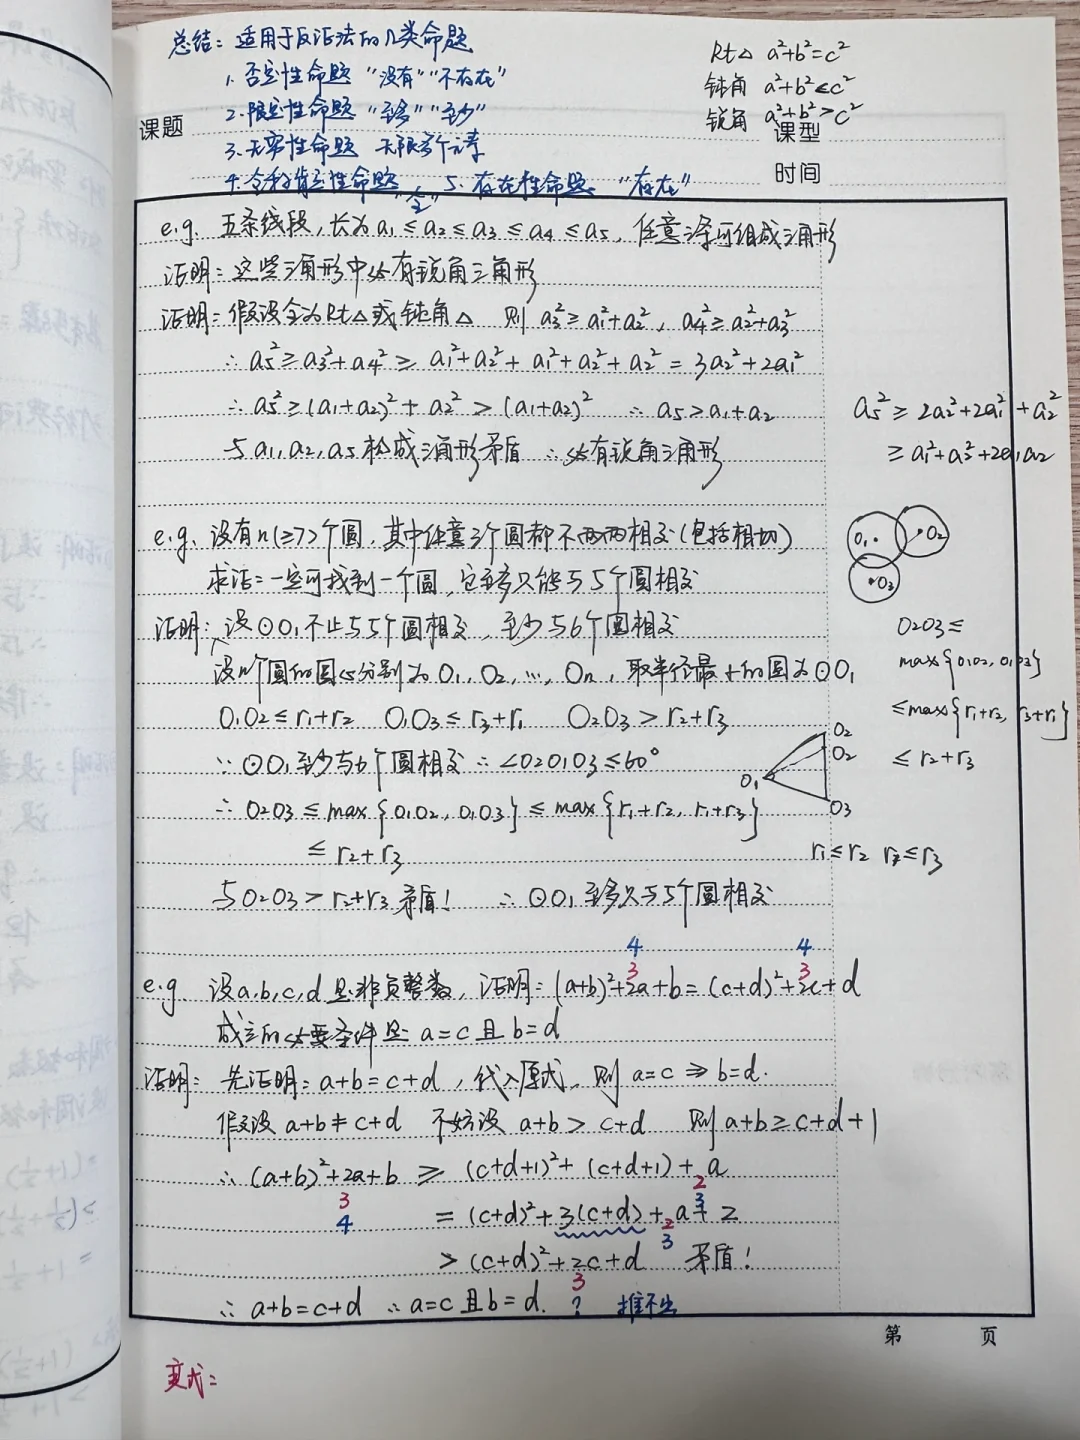 总结：适用于反证法的几类命题
1. 否定性命题 “没有”“不存在”
2. 限定性命题 “至多”“至少”
3. 无穷性命题 无限多个元素
4. 全称肯定性命题 “全” 5. 存在性命题 “存在”
Rt△ a²+b²=c²
钝角 a²+b²<c²
锐角 a²+b²>c²
课题
课型
时间
e.g. 五条线段，长为 a₁≤a₂≤a₃≤a₄≤a₅，任意三条可组成三角形
证明：这些三角形中必有锐角三角形
证明：假设全为Rt△或钝角△ 则 a₃²≥a₁²+a₂²，a₄²≥a₂²+a₃²
∴ a₅²≥a₃²+a₄²≥ a₁²+a₂²+ a₁²+a₂²+a₂² = 3a₂²+2a₁²
∴ a₅²≥(a₁+a₂)²+a₂²>(a₁+a₂)² ∴ a₅>a₁+a₂
与a₁,a₂,a₅构成三角形矛盾 ∴必有锐角三角形
a₅² ≥ 2a₂²+2a₁²+a₂²
≥ a₁²+a₂²+2a₁a₂
e.g. 设有n(≥7)个圆，其中任意3个圆都不两两相交(包括相切)
求证：一定可找到一个圆，它至多只能与5个圆相交
证明：设⊙O₁不止与5个圆相交，至少与6个圆相交
设n个圆的圆心分别为O₁, O₂, …, Oₙ，取半径最小的圆为⊙O₁
O₁O₂≤r₁+r₂ O₁O₃≤r₃+r₁ O₂O₃>r₂+r₃
∵⊙O₁至少与6个圆相交 ∴∠O₂O₁O₃≤60°
∴ O₂O₃≤max{O₁O₂, O₁O₃}≤max{r₁+r₂, r₁+r₃}
≤ r₂+r₃
与O₂O₃>r₂+r₃矛盾！ ∴⊙O₁至多只与5个圆相交
O₁
O₂
O₃
O₂O₃≤
max{O₁O₂, O₁O₃}
≤max{r₁+r₂, r₃+r₁}
≤ r₂+r₃
O₁
O₂
O₂
O₃
r₁≤r₂ r₁≤r₃
4 4
3 3
e.g. 设a,b,c,d是非负整数，证明：(a+b)²+2a+b=(c+d)²+2c+d
成立的必要条件是 a=c且b=d
证明：先证明：a+b=c+d，代入原式，则a=c⇒b=d.
假设a+b≠c+d 不妨设 a+b>c+d 则a+b≥c+d+1
∴(a+b)²+2a+b ≥ (c+d+1)²+(c+d+1)+a
3 2
4 3
=(c+d)²+3(c+d)+a+2
2
3
>(c+d)²+2c+d 矛盾！
3
∴ a+b=c+d ∴a=c且b=d. ? 推不出
第 页
变式：